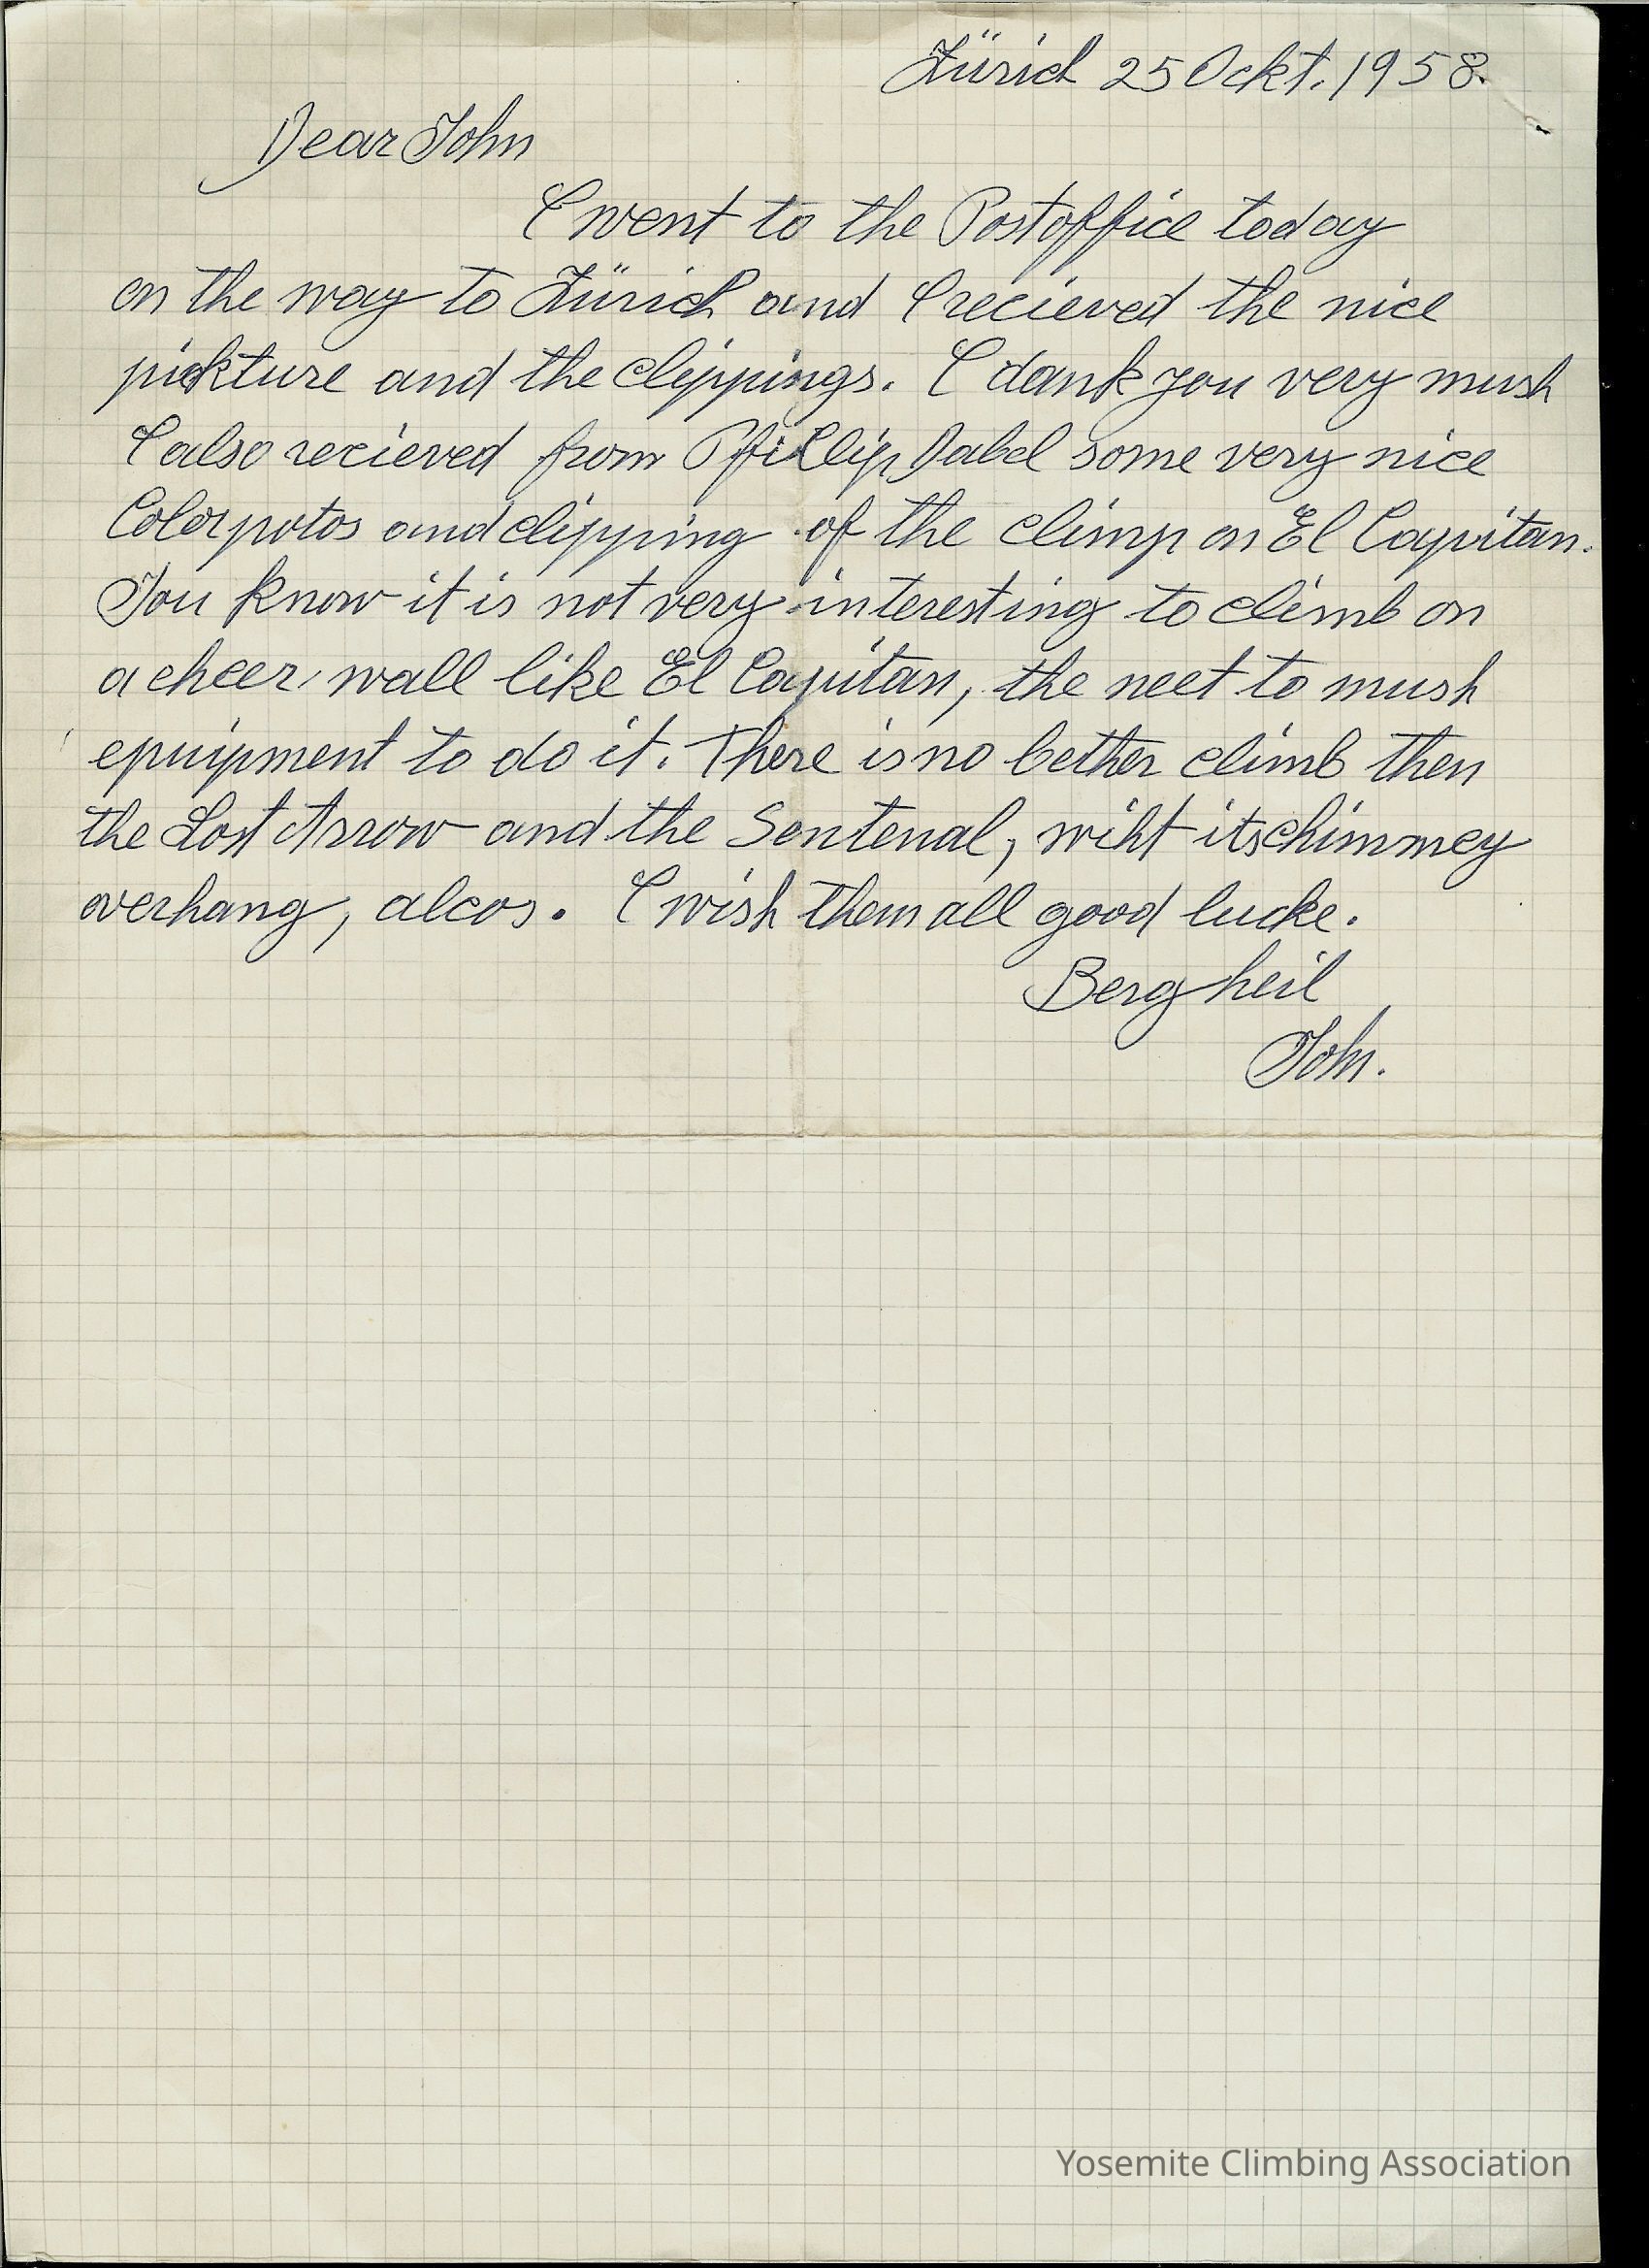 Zürich 25 Ockt. 1958.
Dear John
I went to the Postoffice today
on the way to Zürich and I recieved the nice
pickture and the clippings. I dank you very mush
I also recieved from Pfillip Dabel some very nice
Colorpotos and clipping of the climp on El Capitan.
You know it is not very interesting to climb on
a cheer wall like El Capitan, the neet to mush
epuipment to do it. There is no bether climb then
the Lost Arrow and the Sentenal, wiht its chimmey
overhang, alcos. I wish them all good lucke.
Berg heil
John.
Yosemite Climbing Association